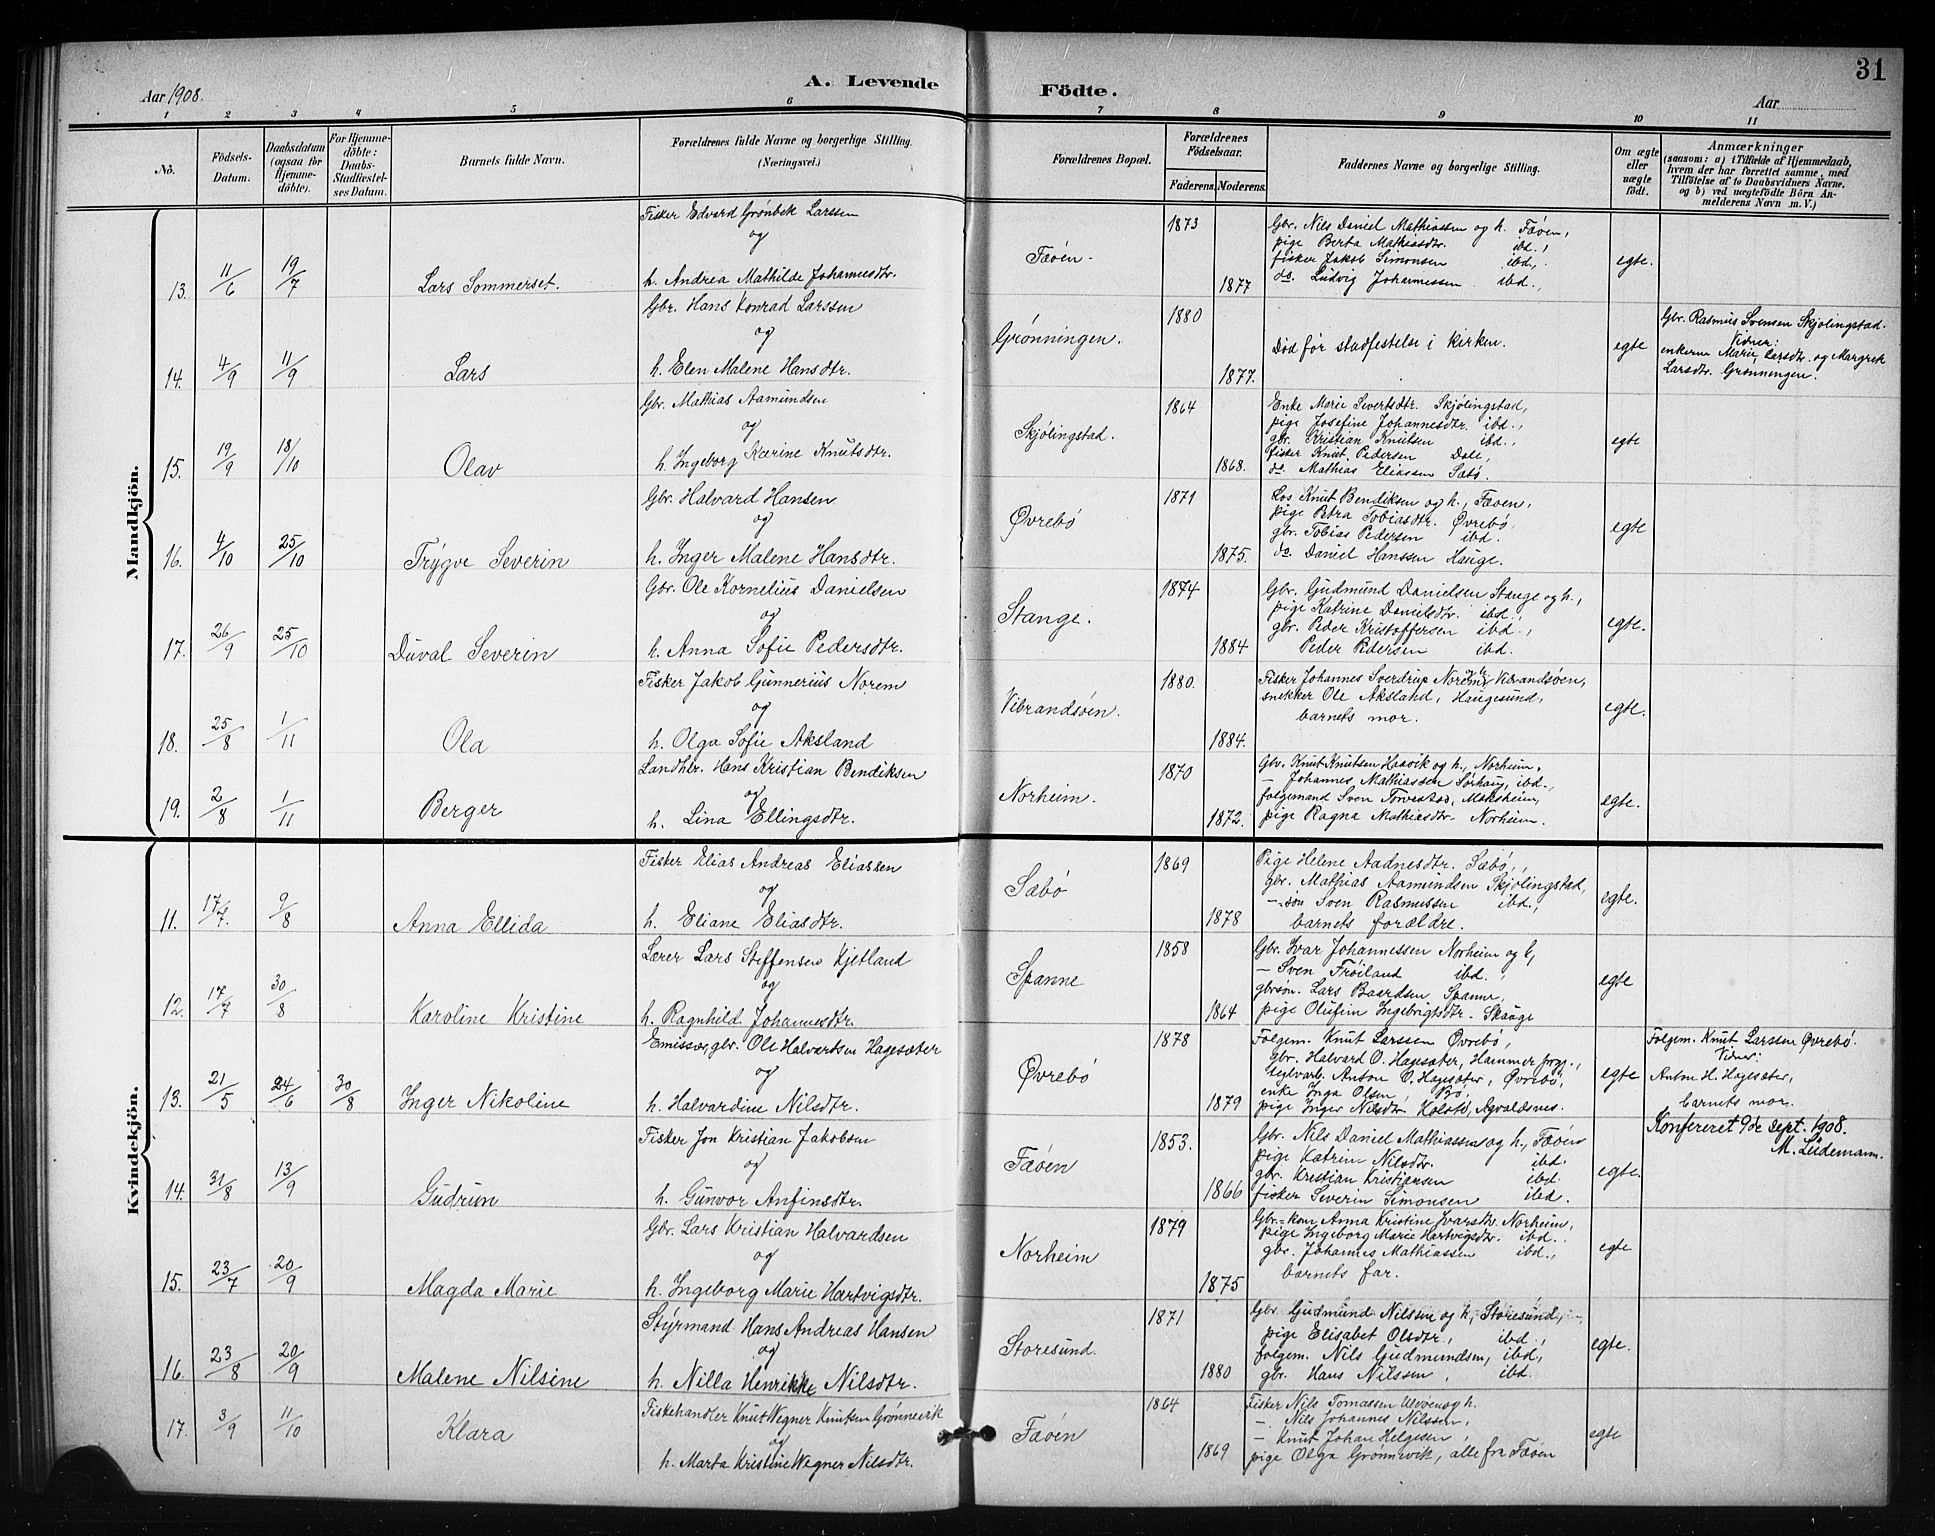 31
Aar 1908.
A. Levende
Födte.
Aar
1 2 3 4 5 6 7 8 9 10 11
No.
Födsels-Datum.
Daabsdatum (ogsaa för Hjemme-döbte).
For Hjemme-döbte: Daabs-Stadfæstelses Datum.
Barnets fulde Navn.
Forældrenes fulde Navne og borgerlige Stilling.
(Næringsvei.)
Forældrenes Bopæl.
Forældrenes Födselsaar.
Faderens. Moderens.
Faddernes Navne og borgerlige Stilling.
Om ægte eller uægte födt.
Anmærkninger
(saasom: a) i Tilfælde af Hjemmedaab,
hvem der har forrettet samme, med
Tilföielse af to Daabsvidners Navne.
og b) ved uægtefödte Börn An-
melderens Navn m. V.)
Mandkjön.
13. 11/6 19/7 Lars Sommerset.
Fisker Edvard Grønbek Larssen
og
h. Andrea Mathilde Johannesdtr.
Fæøen.
1873
1877
Gbr. Nils Daniel Mathiassen og h. Fæøen,
pige Berta Mathiasdtr. ibd.,
fisker Jakob Simonsen ibd.,
do. Ludvig Johannessen ibd.,
egte.
14. 4/9 11/9 Lars
Gbr. Hans Konrad Larssen
og
h. Elen Malene Hansdtr.
Grønningen.
1880
1877.
Død før stadfestelse i kirken.
egte
Gbr. Rasmus Svensen Skjølingstad.
Vidner:
enkerne Marie Larsdtr. og Margrete
Larsdtr. Grønningen.
15. 19/9 18/10 Olav
Gbr. Mathias Aamundsen
og
h. Ingeborg Karine Knutsdtr.
Skjølingstad.
1864
1868.
Enke Marie Sivertsdtr. Skjølingstad,
pige Josefine Johannesdtr. ibd.,
gbr. Kristian Knutsen ibd.,
fisker Knut Pedersen Dale,
do. Mathias Eliassen Sæbø.
egte
16. 4/10 25/10 Trygve Severin
Gbr. Halvard Hansen
og
h. Inger Malene Hansdtr.
Øvrebø
1871
1875.
Los Knut Bendiksen og h., Fæøen,
pige Petra Tobiasdtr. Øvrebø,
gbr. Tobias Pedersen ibd.
do. Daniel Hanssen Hauge.
egte
17. 26/9 25/10 Duval Severin
Gbr. Ole Kornelius Danielsen
og
h. Anna Sofie Pedersdtr.
Stange.
1874
1884
Gbr. Gudmund Danielsen Stange og h.,
pige Katrine Danielsdtr. ibd.,
gbr. Peder Kristoffersen ibd.,
Peder Pedersen ibd.
egte.
18. 25/8 1/11 Ola
Fisker Jakob Gunnerius Norem
og
h. Olga Sofie Aksland
Vibrandsøen.
1880.
1884.
Fisker Johannes Sverdrup Norem, Vibrandsøen,
snekker Ole Aksland, Haugesund,
barnets mor.
egte.
19. 2/8 1/11 Berger
Landhlr. Hans Kristian Bendiksen
og
h. Lina Ellingsdtr.
Norheim.
1870
1872.
Gbr. Knut Knutsen Haavik og h., Norheim.
— Johannes Mathiassen Sørhaug, ibd.,
folgemand Sven Torvestad, Moksheim,
pige Ragna Mathiasdtr. Norheim.
egte.
Kvindekjön.
11. 17/7. 9/8 Anna Ellida
Fisker Elias Andreas Eliassen
og
h. Eliane Eliasdtr.
Sæbø
1869
1878
Pige Helene Aadnesdtr. Sæbø,
gbr. Mathias Aamundsen Skjølingstad,
— søn Sven Rasmussen ibd.,
barnets forældre.
egte.
12. 17/7 30/8 Karoline Kristine
Lærer Lars Steffensen Kjetland
og
h. Ragnhild Johannesdtr.
Spanne
1858
1864
Gbr. Ivar Johannessen Norheim og h,
— Sven Frøiland ibd.,
gbrsøn. Lars Baardsen Spanne,
pige Olufin Ingebrigtsdtr. Skaage
egte
13. 21/5 24/6 30/8 Inger Nikoline
Emissær, gbr. Ole Halvardsen Hagesæter
og
h. Halvardine Nilsdtr.
Øvrebø
1878
1879
Folgem. Knut Larssen Øvrebø,
gbr. Halvard O. Hagesæter, Hammer prgj.,
teglvarb. Anton O. Hagesæter, Øvrebø,
enke Inga Olsen Bø,
pige Inger Nilsdtr. Kolstø, Avaldsnes.
egte
Folgem. Knut Larssen Øvrebø.
Vidner:
Anton H. Hagesæter,
barnets mor.
Konfereret 9de sept. 1908.
M. Leidemann.
14. 31/8 13/9 Gudrun
Fisker Jon Kristian Jakobsen
og
h. Gunvor Anfinsdtr.
Fæøen
1853.
1866
Gbr. Nils Daniel Mathiassen og h., Fæøen
pige Katrin Nilsdtr. ibd.
gbr. Kristian Kristiansen ibd.
fisker Severin Simonsen ibd.
egte.
15. 23/7 20/9 Magda Marie
Gbr. Lars Kristian Halvardsen
og
h. Ingeborg Marie Hartvigsdtr.
Norheim
1879
1875
Gbr.-kone Anna Kristine Ivarsdtr. Norheim,
pige Ingeborg Marie Hartvigsdtr. ibd.
gbr. Johannes Mathiassen ibd.,
barnets far.
egte
16. 23/8 20/9 Malene Nilsine
Styrmand Hans Andreas Hansen
og
h. Nilla Henrikke Nilsdtr.
Storesund.
1871
1880
Gbr. Gudmund Nilssen og h, Storesund,
pige Elisabet Olsdtr., ibd.,
folgem. Nils Gudmundsen, ibd,
gbr. Hans Nilssen, ibd.
egte.
17. 3/9 11/10 Klara
Fiskehandler Knut Wegner Knutsen Grønnevik
og
h. Marta Kristine Wegner Nilsdtr.
Fæøen
1864
1869
Fisker Nils Tomassen og h.
— Nils Johannes Nilssen,
— Knut Johan Helgesen,
pige Olga Grønnevik, alle fra Fæøen
egte